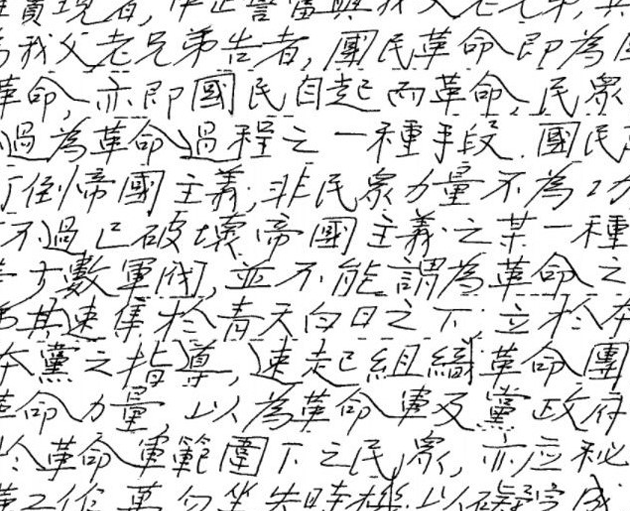 實現者,
為我父老兄弟告者,國民革命即為
革命,亦即國民自起而革命,民眾
過為革命過程之一種手段.國民
打倒帝國主義,非民眾力量不為功
不過已破壞帝國主義之某一種
少數軍閥,並不能謂為革命之
其速集於青天白日之下,立於本
本黨之指導,速起組織革命團
革命力量,以為革命軍及黨政府
於革命軍範圍下之民眾,亦应秘
工作,萬勿坐失時機,以礙完成